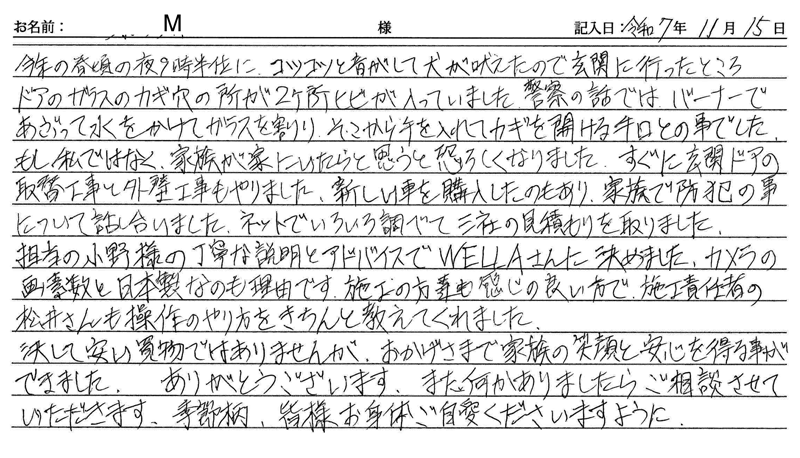 お名前: M 様 記入日:令和7年11月15日
今年の春頃の夜9時半位に、コツコツと音がして犬が吠えたので玄関に行ったところ
ドアのガラスのカギ穴の所が2ヶ所ヒビが入っていました。警察の話では、バーナーで
あぶって水をかけてガラスを割り、そこから手を入れてカギを開ける手口との事でした。
もし私ではなく、家族が家にいたらと思うと恐ろしくなりました。すぐに玄関ドアの
取替工事と外壁工事もやりました、新しい車を購入したのもあり、家族で防犯の事
について話し合いました。ネットでいろいろ調べて三社の見積もりを取りました。
担当の小野様の丁寧な説明とアドバイスでWELLAさんに決めました。カメラの
画素数と日本製なのも理由です。施工の方事も感じの良い方で、施工責任者の
松井さんも操作のやり方をきちんと教えてくれました。
決して安い買物ではありませんが、おかげさまで家族の笑顔と安心を得る事が
できました。 ありがとうございます、また何かありましたらご相談させて
いただきます、季節柄、皆様お身体ご自愛くださいますように。